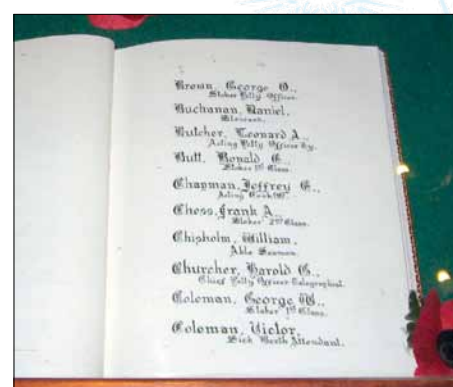 Brown, George O.,
Stoker Petty Officer.
Buchanan, Daniel,
Steward.
Butcher, Leonard A.,
Acting Petty Officer
Butt, Ronald
Stoker 1st Class.
Chapman, Jeffrey
Acting Cook
Chess, Frank A.,
Stoker 2nd Class.
Chisholm, William,
Able Seaman.
Churcher, Harold G.,
Chief Petty Officer Telegraphist.
Coleman, George W.,
Stoker 1st Class.
Coleman, Victor,
Sick Berth Attendant.